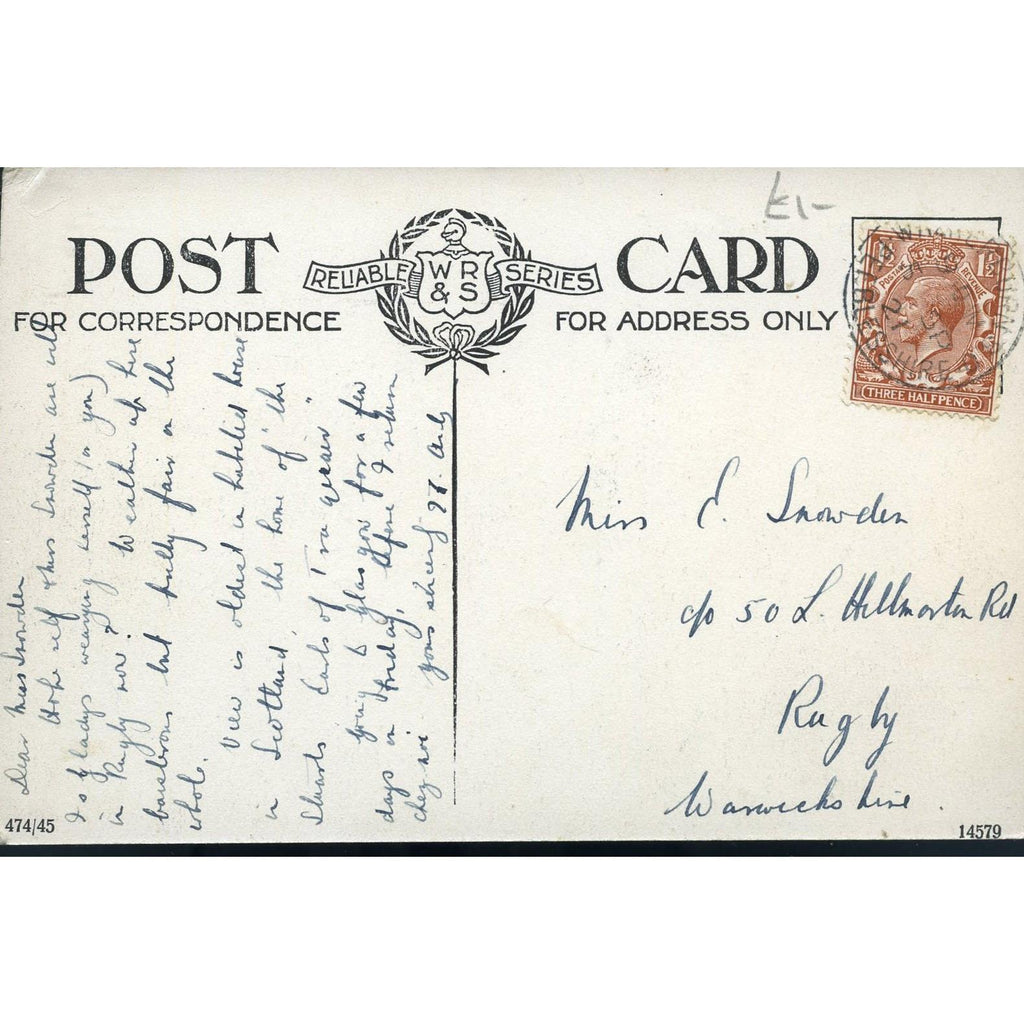 £1-
POST CARD
RELIABLE WR & S SERIES
FOR CORRESPONDENCE
FOR ADDRESS ONLY
1½ 1½
POSTAGE REVENUE
THREE HALFPENCE
Dear Miss Snowden
Hope self & Miss Snowden are well
Is Gladys wearying herself (or you)
in Rugby now? Weather up here
boisterous but fully fair on the
whole.
View is oldest inhabited house
in Scotland, the home of "the
Stuarts Earls of Traquair"
going to Glasgow for a few
days on Monday, before I return
yours sincerely
Miss E. Snowden
c/o 50 L. Hillmorton Rd
Rugby
Warwickshire.
474/45
14579